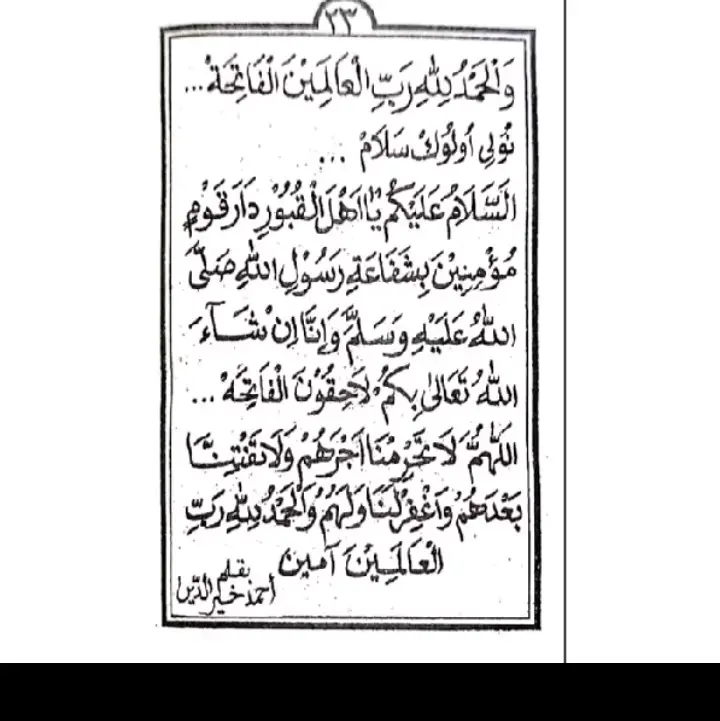 ٢٣
وَالْحَمْدُ لِلّٰهِ رَبِّ الْعَالَمِيْنَ الْفَاتِحَةْ...
نُوْلِى اُولُوْكْ سَلَامْ ...
اَلسَّلَامُ عَلَيْكُمْ يَااَهْلَ الْقُبُوْرِ دَارَ قَوْمٍ
مُؤْمِنِيْنَ بِشَفَاعَةِ رَسُوْلِ اللهِ صَلَّى
اللهُ عَلَيْهِ وَسَلَّمَ وَاِنَّا اِنْ شَآءَ
اللهُ تَعَالٰى بِكُمْ لَاحِقُوْنَ الْفَاتِحَةْ ...
اَللّٰهُمَّ لَا تَحْرِمْنَا اَجْرَهُمْ وَلَا تَفْتِنَّا
بَعْدَهُمْ وَاغْفِرْلَنَا وَلَهُمْ وَالْحَمْدُ لِلّٰهِ رَبِّ
الْعَالَمِيْنَ آمين
بقلم
أحمد خير الدين